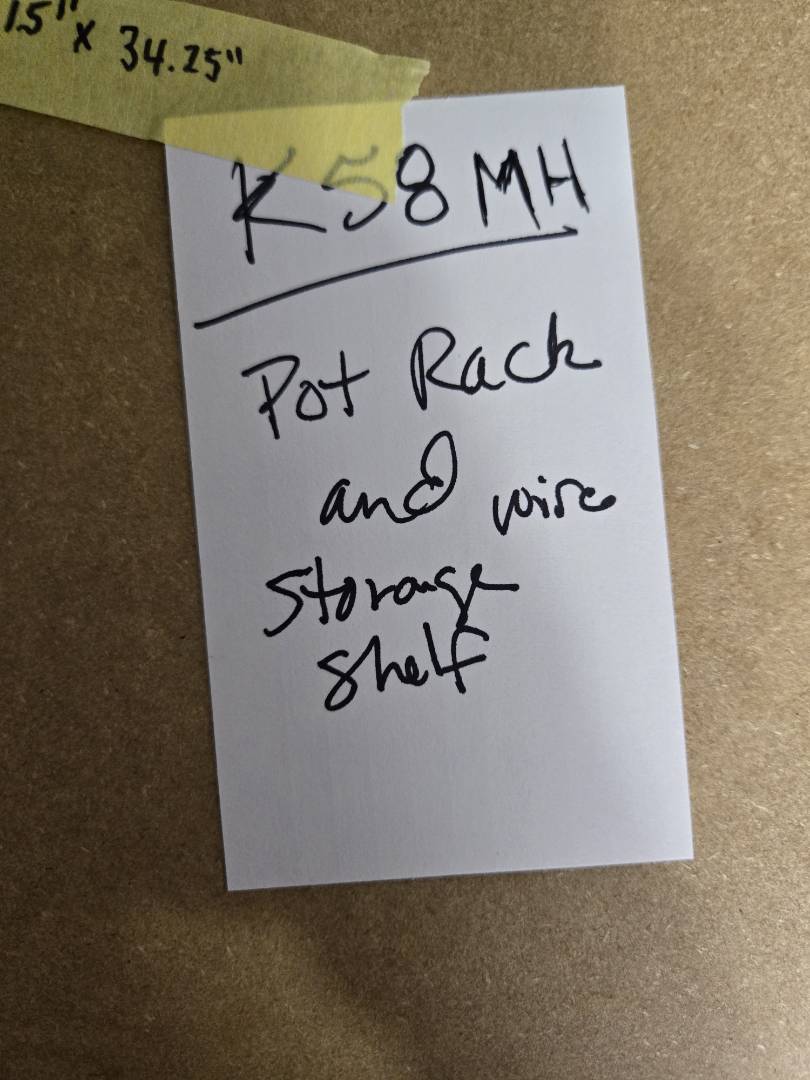 15" x 34.25"
K58MH
Pot Rack
and wire
storage
shelf